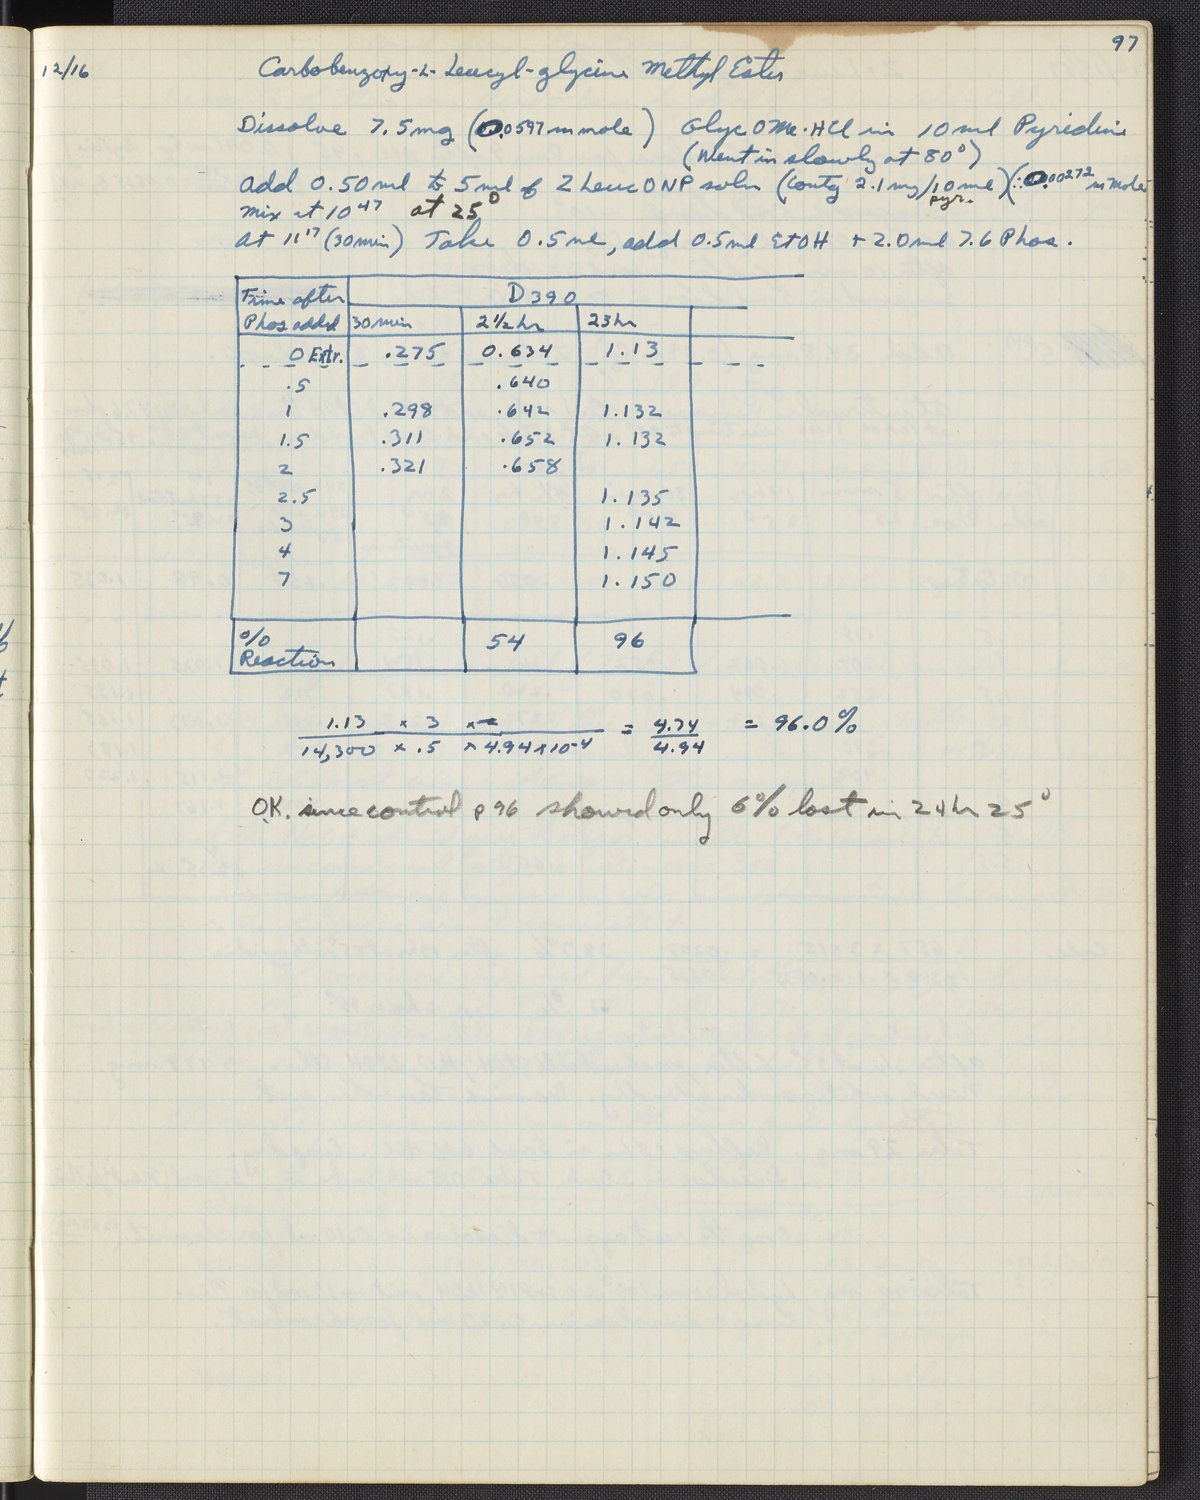 97
12/16 Carbobenzoxy-L-Leucyl-glycine Methyl Ester
Dissolve 7.5mg (0.0597 mmole) Glyc OMe·HCl in 10 ml Pyridine
(Went in slowly at 80°)
add 0.50 ml to 5 ml of Z Leuc ONP soln (contg 2.1 mg/10 ml pyr.) (∴ 0.00272 mmole
mix at 10 47 at 25°
at 11 17 (30 min) Take 0.5 ml, add 0.5 ml EtOH + 2.0 ml 7.6 Phos.
Time after Phos added D390
30 min 2 1/2 hr 23 hr
0 Extr. .275 0.634 1.13
.5 .640
1 .298 .642 1.132
1.5 .311 .652 1.132
2 .321 .658
2.5 1.135
3 1.142
4 1.145
7 1.150
% Reaction 54 96
1.13 × 3 / 14,300 × .5 × 4.94 × 10-4 = 4.74 / 4.94 = 96.0%
O.K. since control p 96 showed only 6% lost in 24 hr 25°